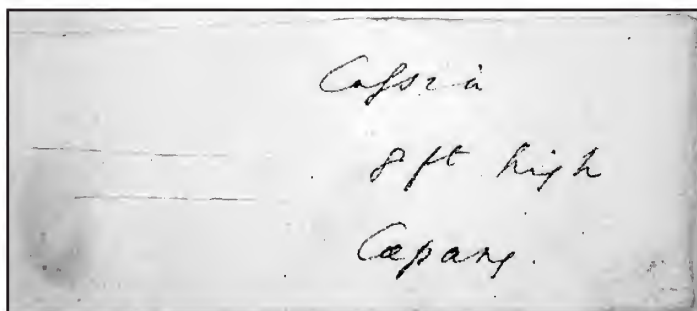 Cassia
8 ft high
Coepang.